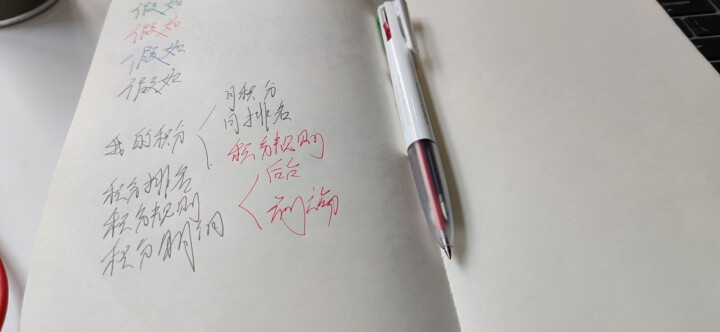 假如
假如
假如
假如
我的积分
月积分
月排名
积分规则
积分排名
积分规则
积分明细
后台